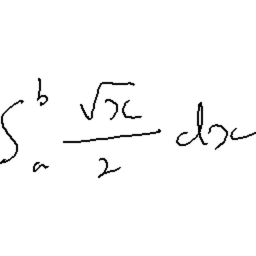 ∫_a^b \frac{\sqrt{x}}{2} dx